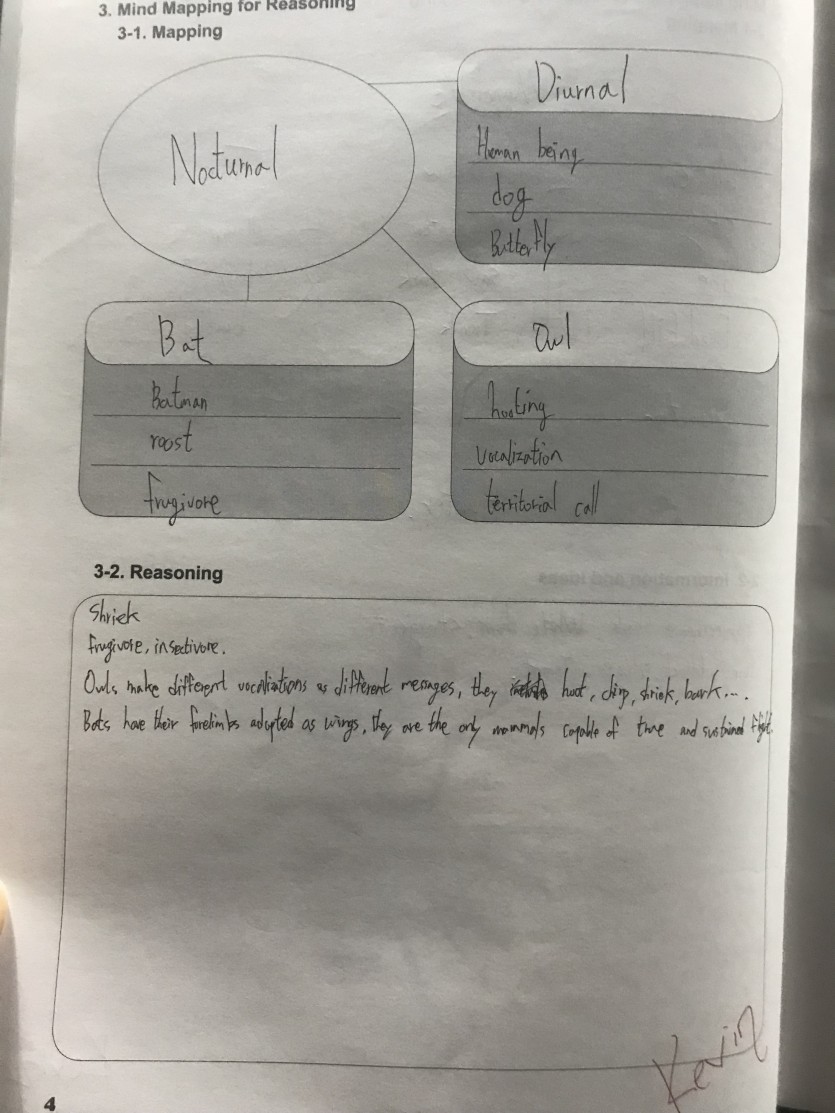 3. Mind Mapping for Reasoning
3-1. Mapping
Nocturnal
Diurnal
Human being
dog
Butterfly
Bat
Batman
roost
frugivore
Owl
hooting
vocalization
territorial call
3-2. Reasoning
Shriek
frugivore, insectivore.
Owls make different vocalizations as different messages, they hoot, chirp, shriek, bark....
Bats have their forelimbs adapted as wings, they are the only mammals capable of true and sustained flight.
Kevin
4